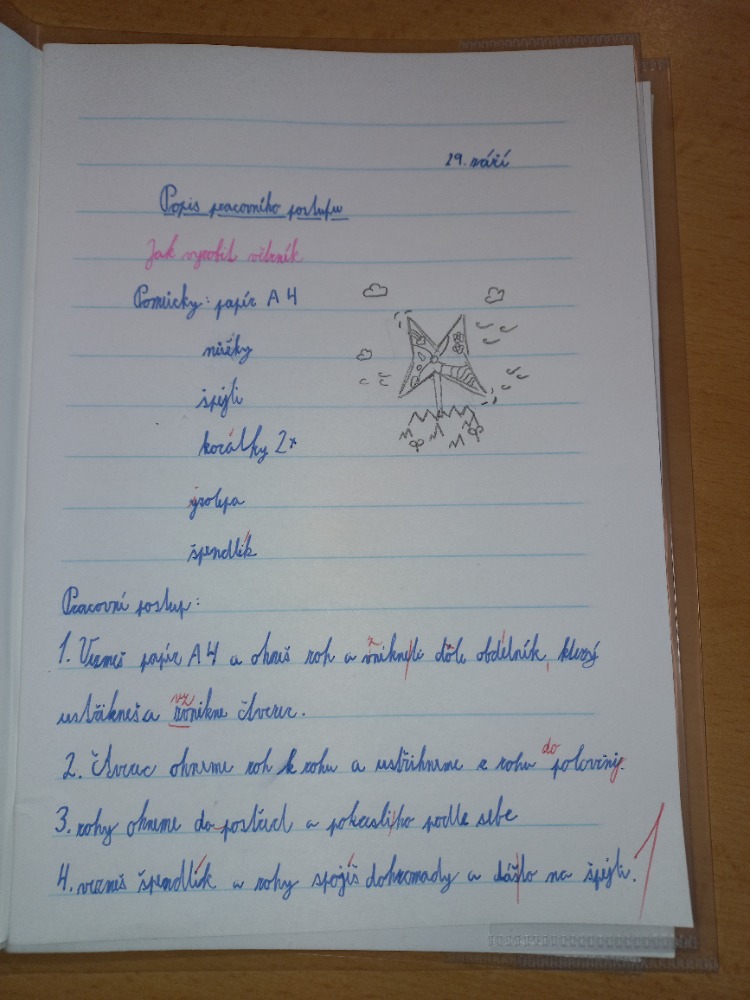 29. září
Popis pracovního postupu
Jak vyrobit větrník
Pomůcky: papír A4
nůžky
špejli
korálky 2x
isolepa
špendlík
Pracovní postup:
1. Vezmeš papír A4 a ohneš roh a dole obdélník, který
a vznikne čtverec.
2. čtverec ohneme roh k rohu a ustřihneme z rohu do poloviny.
3. rohy ohneme do a podle sebe
4. vezmeš špendlík a rohy spojíš dohromady a na špejli.
1